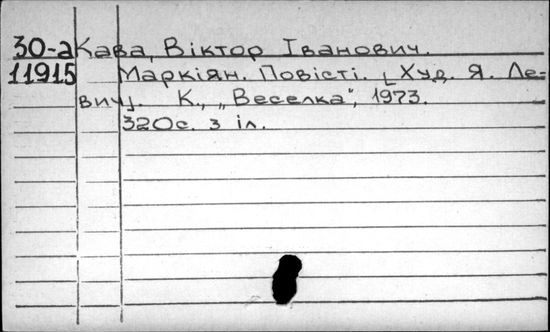 30-а Кава, Віктор Іванович.
11915 Маркіян. Повісті. [Худ. Я. Ле-
вич]. К., „Веселка", 1973.
320с. з іл.